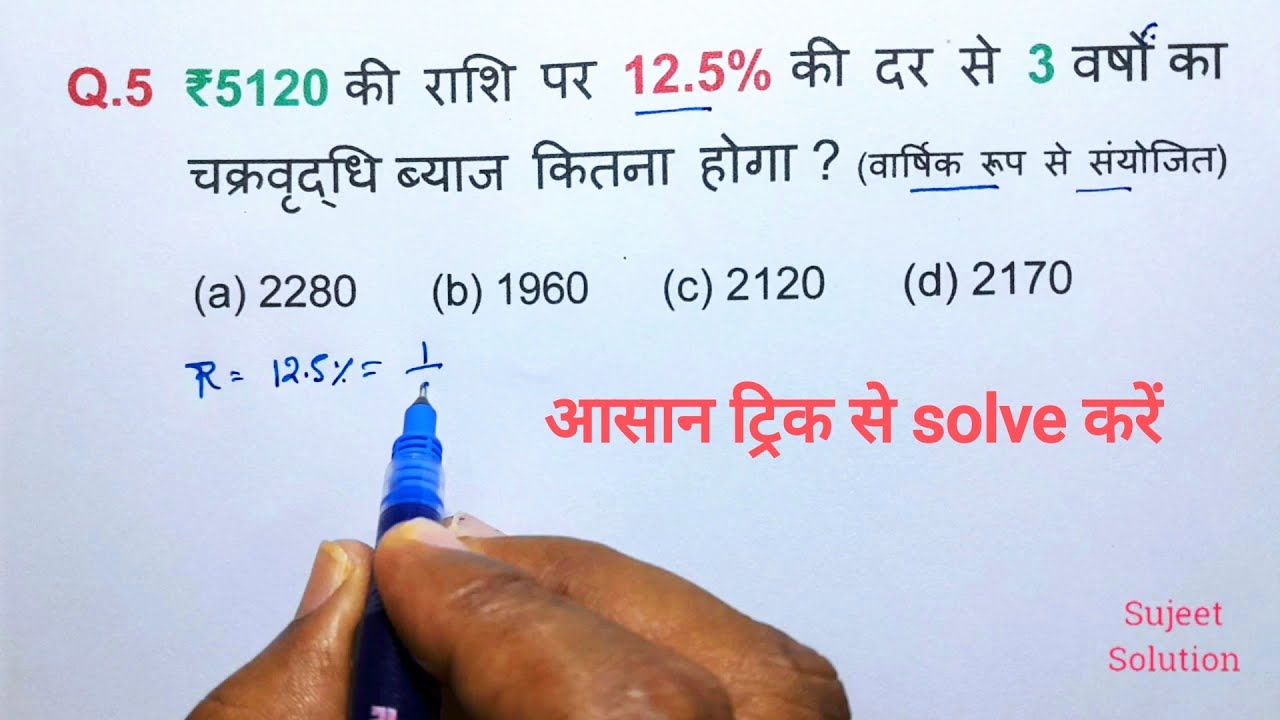 Q.5 ₹5120 की राशि पर 12.5% की दर से 3 वर्षों का
चक्रवृद्धि ब्याज कितना होगा ? (वार्षिक रूप से संयोजित)
(a) 2280 (b) 1960 (c) 2120 (d) 2170
R = 12.5% = 1
आसान ट्रिक से solve करें
Sujeet
Solution